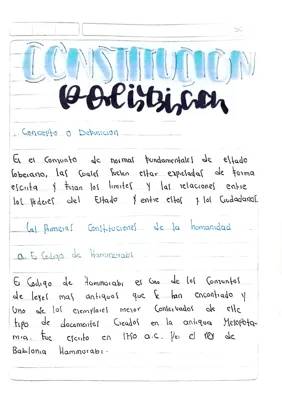 CONSTITUCION
Politica
. Concepto o Definicion
Es el Conjunto de normas fundamentales de estado
Soberano, las Cuales suelen estar expresadas de forma
escrita y fijan los limites y las relaciones entre
los poderes del Estado y entre estos y los Ciudadanos.
Las Primeras Constituciones de la humanidad
a. El Codigo de Hammurabi
El Codigo de Hammurabi es Uno de los Conjuntos
de leyes mas antiguos que se han encontrado y
Uno de los ejemplares mejor Conservados de este
tipo de documentos Creados en la antigua Mesopota-
mia. Fue escrito en 1750 a.c. Por el rey de
Babilonia Hammurabi.